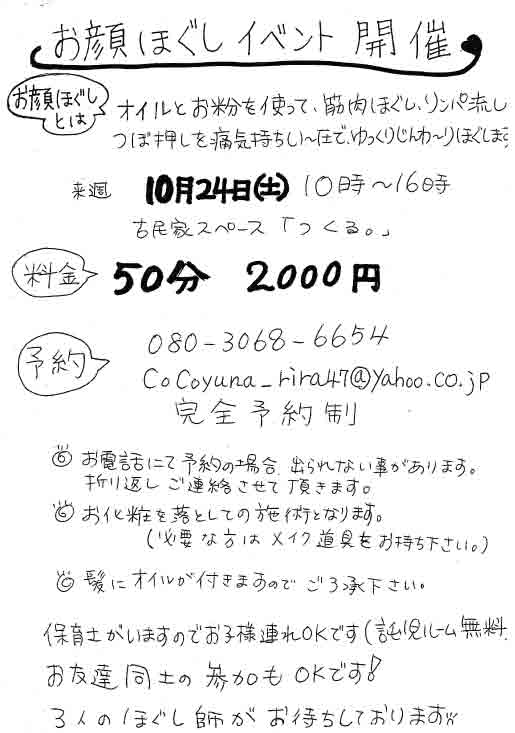 お顔ほぐしイベント開催
お顔ほぐし
とは
オイルとお粉を使って、筋肉ほぐし、リンパ流し
つぼ押しを痛気持ちい〜圧で、ゆっくりじんわ〜りほぐします
来週 10月24日(土) 10時〜16時
古民家スペース「つくる。」
料金 50分 2000円
予約
080-3068-6654
CoCoyuna_rira47@yahoo.co.jp
完全予約制
◎ お電話にて予約の場合、出られない事があります。
折り返しご連絡させて頂きます。
◎ お化粧を落としての施術となります。
(必要な方はメイク道具をお持ち下さい。)
◎ 髪にオイルが付きますのでご了承下さい。
保育士がいますのでお子様連れOKです(託児ルーム無料
お友達同士の参加もOKです!
3人のほぐし師がお待ちしております!!